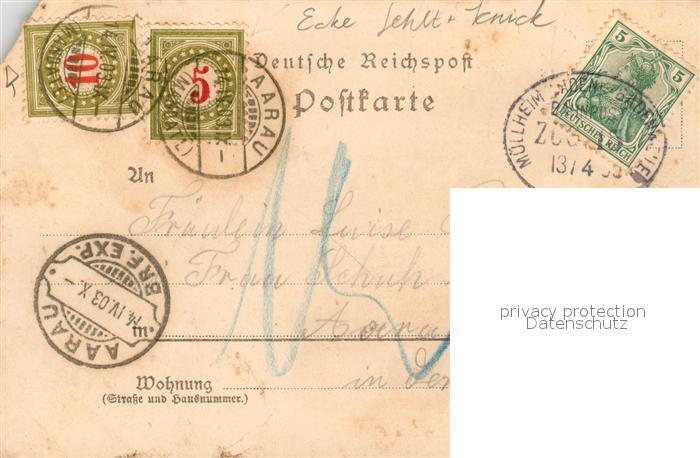 Ecke fehlt + Knick
10
5
5
DEUTSCHES REICH
Deutsche Reichspost
Postkarte
AARAU
AARAU
MÜLLHEIM
ZUG
13/4 03
An
Fräulein Luise
Frau Schuh
Aarau
in der
AARAU
14.IV.03.X.
BRF. EXP.
Wohnung
(Straße und Hausnummer.)
15
privacy protection
Datenschutz